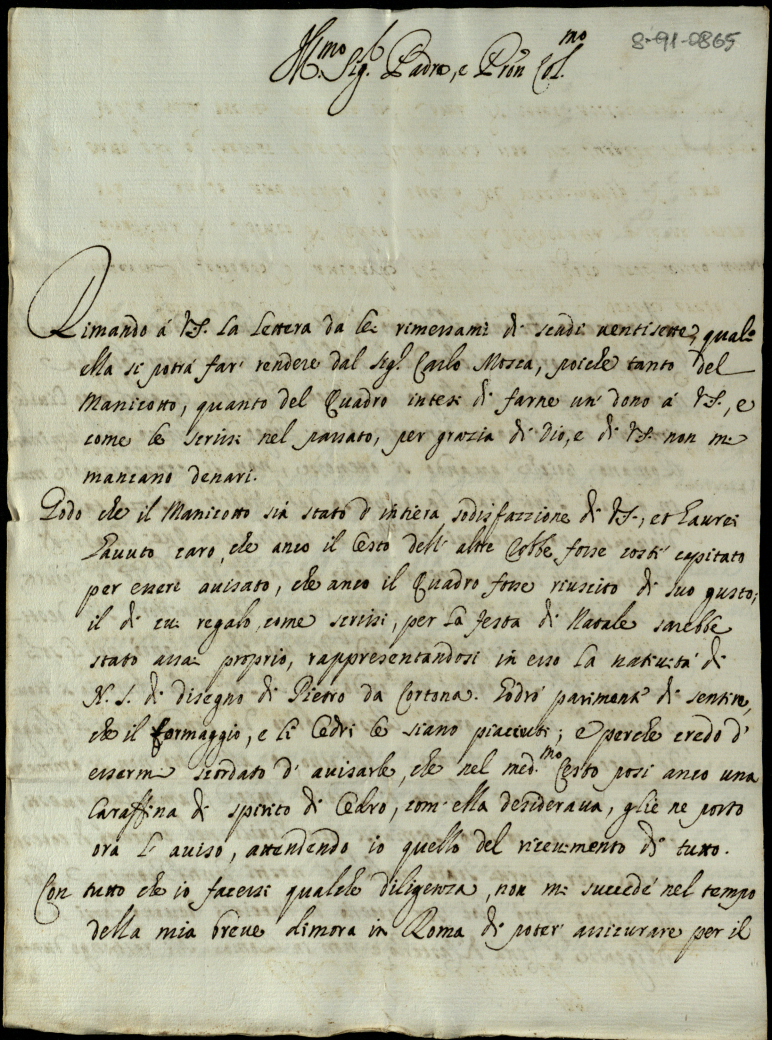 8-91-0865
Ill.mo Sig.r Padre, e Pron Col.mo
Rimando á VS. la lettera da lei rimessami di scudi ventisette, quale
ella si potrá far' rendere dal Sig.r Carlo Mosca, poiche tanto del
Manicotto, quanto del Quadro intesi di farne un' dono á VS., e
come le scrissi nel passato, per grazia di Dio, e di VS. non mi
mancano denari.
Godo che il Manicotto sia stato d'intiera sodisfazzione di VS., et haurei
hauuto caro, che anco il Cesto dell' altre robbe fosse costí capitato
per esser auisato, che anco il Quadro fosse riuscito di suo gusto;
il di cui regalo, come scrissi, per la festa di Natale sarebbe
stato assai proprio, rappresentandosi in esso la natiuitá di
N. S. di disegno di Pietro da Cortona. Godró parimenti di sentire,
che il formaggio, e li Cedri le siano piaciuti; e perche credo d'
essermi scordato d'auisarle, che nel med.mo Cesto posi anco una
Caraffina di spirito di Cedro, com' ella desideraua, glie ne porto
ora l'auiso, attendendo io quello del riceuimento di tutto.
Con tutto che io facessi qualche diligenza, non mi succedé nel tempo
della mia breue dimora in Roma di poter' assicurare per il